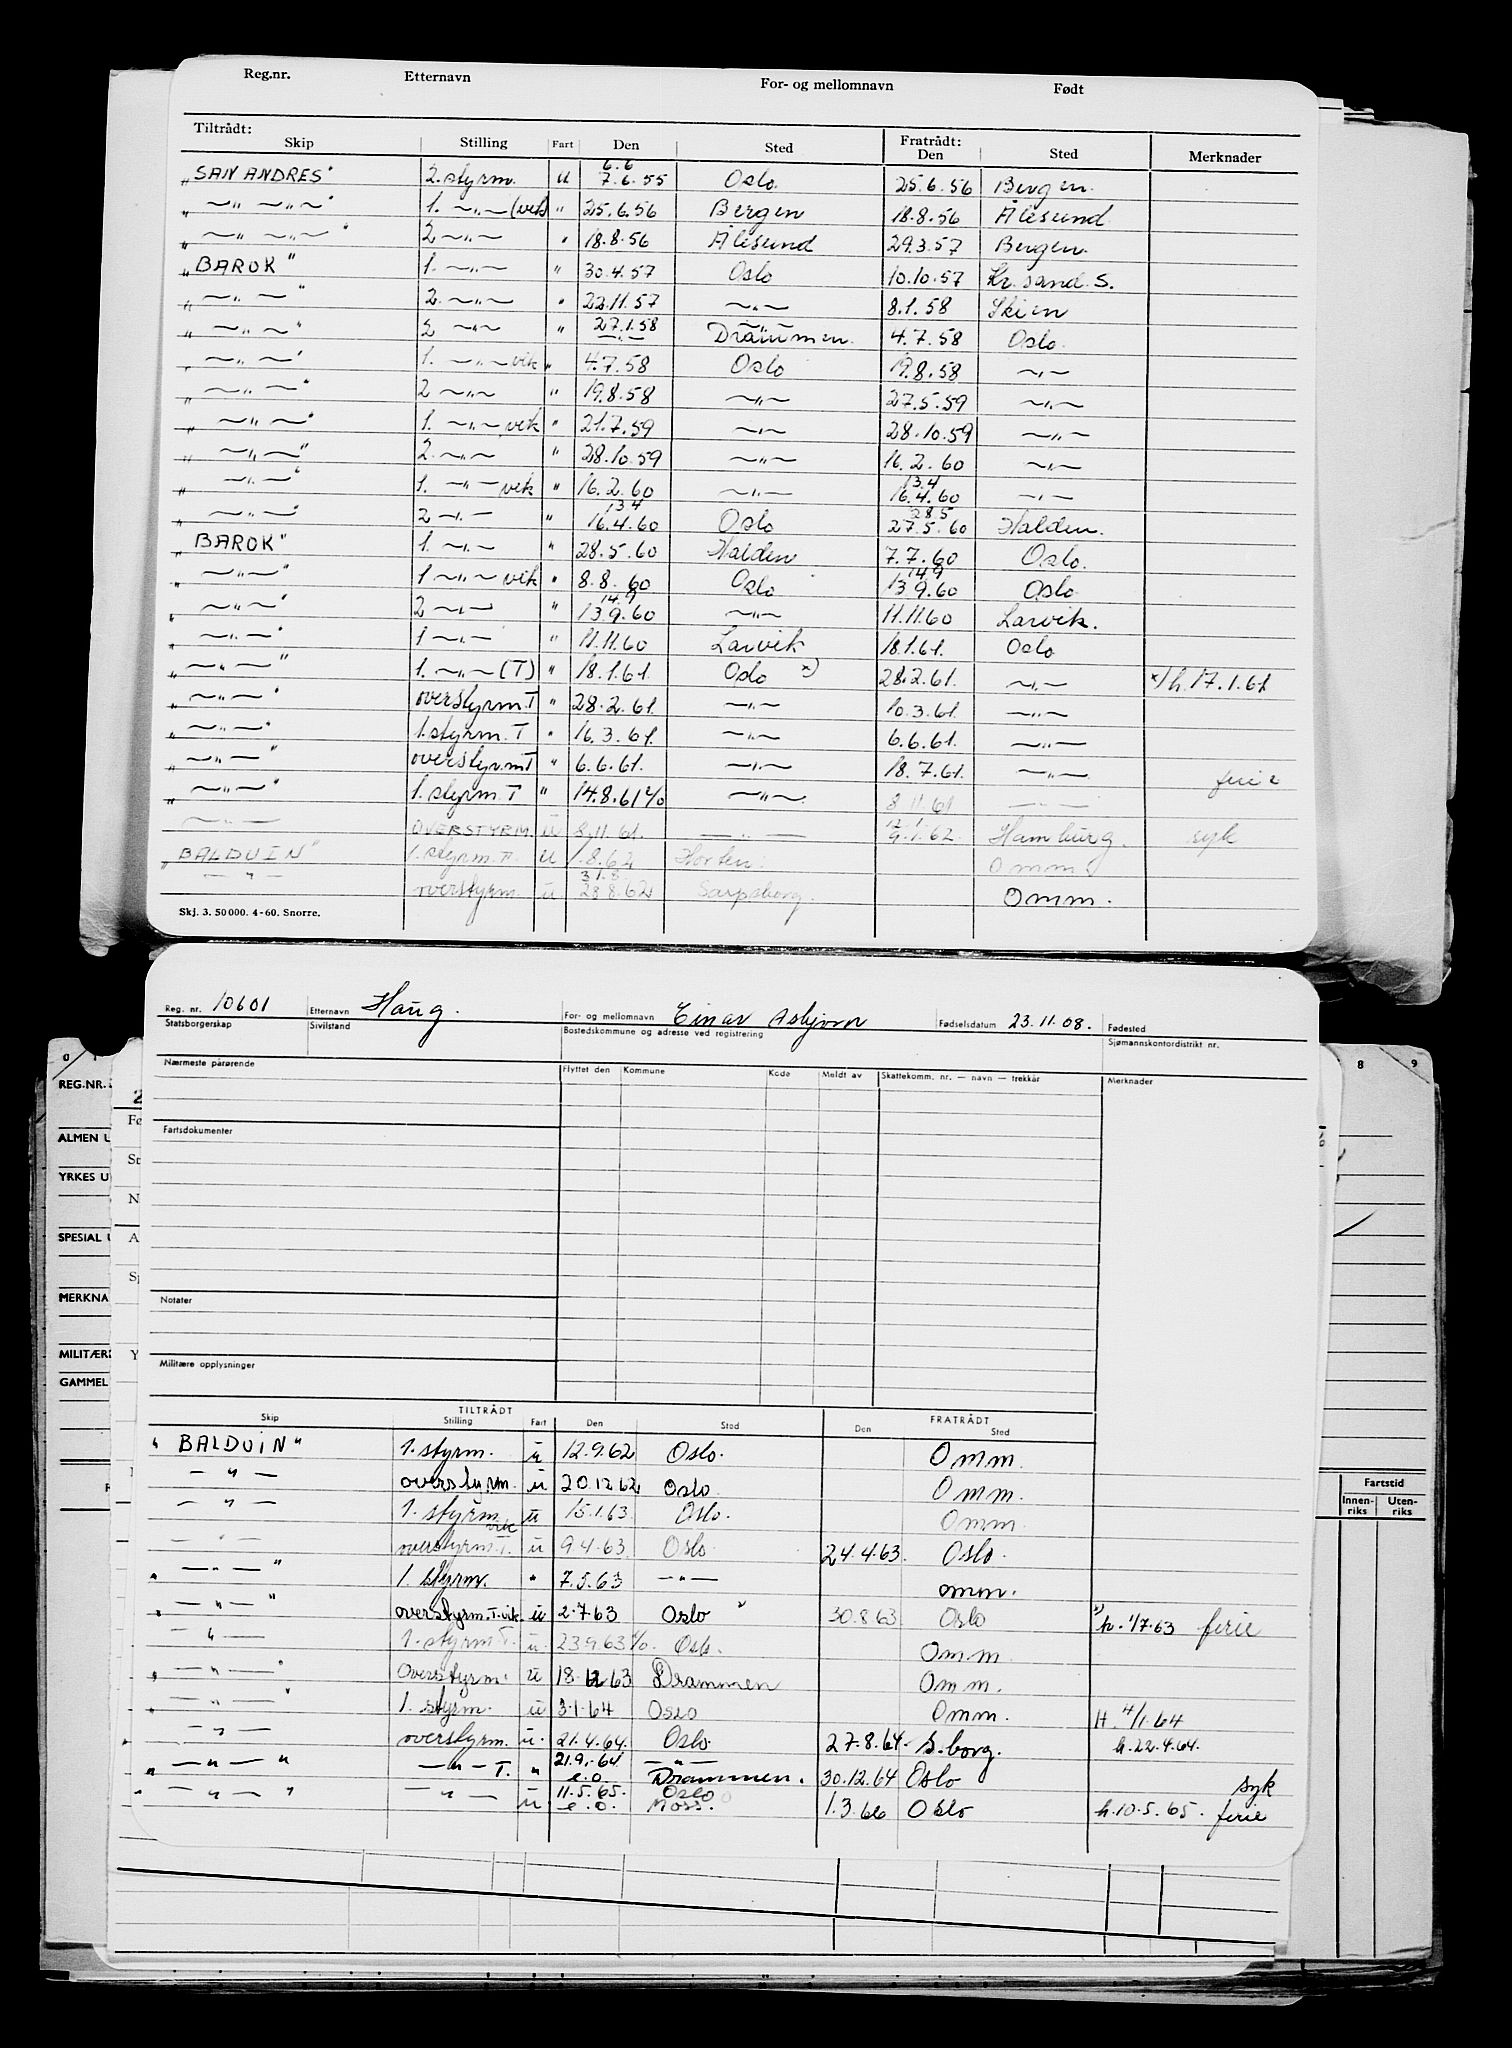 Reg.nr. Etternavn For- og mellomnavn Født
Tiltrådt: Skip Stilling Fart Den Sted Fratrådt: Den Sted Merknader
"SAN ANDRES" 2. styrm. u 6.6 7.6.55 Oslo. 25.6.56 Bergen.
" —"— —"—" 1. —"— (vik) " 25.6.56 Bergen 18.8.56 Ålesund
" —"— —"—" 2 —"— " 18.8.56 Ålesund 29.3.57 Bergen.
"BAROK" 1. —"— " 30.4.57 Oslo 10.10.57 Kr.sand.S.
" —"— —" 2. —"— " 22.11.57 —"— 8.1.58 Skien
" —"—" 2 —"— " 27.1.58 —"— —"— Drammen. 4.7.58 Oslo.
" —"—" 1. —"— vik " 4.7.58 Oslo 19.8.58 —"—
" —"—" 2 —"— " 19.8.58 —"— 27.5.59 —"—
" —"—" 1. —"— vik " 21.7.59 —"— 28.10.59 —"—
" —"—" 2. —"— " 28.10.59 —"— 16.2.60 —"—
" —"—" 1. —"— vik " 16.2.60 —"— 13.4 16.4.60 —"—
" —"—" 2 —"— " 13.4 16.4.60 Oslo 28.5 27.5.60 Halden.
"BAROK" 1. —"— " 28.5.60 Halden 7.7.60 Oslo.
" —"—" 1 —"— vik " 8.8.60 Oslo 14.9 13.9.60 Oslo
" —"—" 2 —"— " 14.9 13.9.60 —"— 11.11.60 Larvik.
" —"—" 1 —"— " 11.11.60 Larvik 18.1.61. Oslo
" —"—" 1. —"— (T) " 18.1.61. Oslo x) 28.2.61. —"— x) h.17.1.61
" —"—" overstyrm.T " 28.2.61. —"— 10.3.61. —"—
" —"—" 1.styrm.T " 16.3.61. —"— 6.6.61. —"—
" —"—" overstyrm.T " 6.6.61. —"— 18.7.61. —"— ferie
" —"—" 1. styrm.T " 14.8.61 % —"—. 8.11.61 —"—
—"— OVERSTYRM. u 8.11.61. —"— .1.62. Hamburg. syk
"BALDUIN" 1. styrm.T. u 1.8.62 Horten. Omm.
—"— overstyrm. u 31.8 28.8.62 Sarpsborg. Omm.
Skj. 3. 50000. 4-60. Snorre.
Reg. nr. 10601 Etternavn Haug. For- og mellomnavn Einar Asbjørn Fødselsdatum 23.11.08. Fødested
Statsborgerskap Sivilstand Bostedskommune og adresse ved registrering Sjømannskontordistrikt nr.
Nærmeste pårørende Flyttet den Kommune Kode Meldt av Skattekomm. nr. — navn — trekkår Merknader
Fartsdokumenter
Notater
Militære opplysninger
TILTRÅDT FRATRÅDT
Skip Stilling Fart Den Sted Den Sted
"BALDUIN" 1. styrm. u 12.9.62 Oslo. Omm.
—"— overstyrm. u 20.12.62 Oslo Omm.
—"— 1. styrm. u 15.1.63. Oslo. Omm.
—"— overstyrm.T. vik u 9.4.63 Oslo. 24.4.63. Oslo.
" —"—" 1. styrm. " 7.5.63 —"— omm.
" —"—" overstyrm.T.vik. u 2.7.63 Oslo x) 30.8.63 Oslo x) h. 1/7.63 ferie
—"— 1. styrm T. u. 23.9.63 %. Oslo. Omm.
" —"—" Overstyrm. u 18.12.63 Drammen Omm.
" —"—" 1. styrm. u 3.1.64 Oslo Omm. H. 4/1.64
" —"— overstyrm. u. 21.4.64. Oslo. 27.8.64. S.borg. h.22.4.64.
" —"—" —"— T. " 21.9.64 e.o. —"— Drammen. 30.12.64 Oslo syk
" —"—" —"— u 11.5.65. e.o. Oslo Moss. 1.3.66 Oslo h.10.5.65. ferie
0 1 8 9
REG.NR.
ALMEN U
YRKES U
SPESIAL U
MERKNA
MILITÆR
GAMMEL
Fartstid
Innen-riks Uten-riks